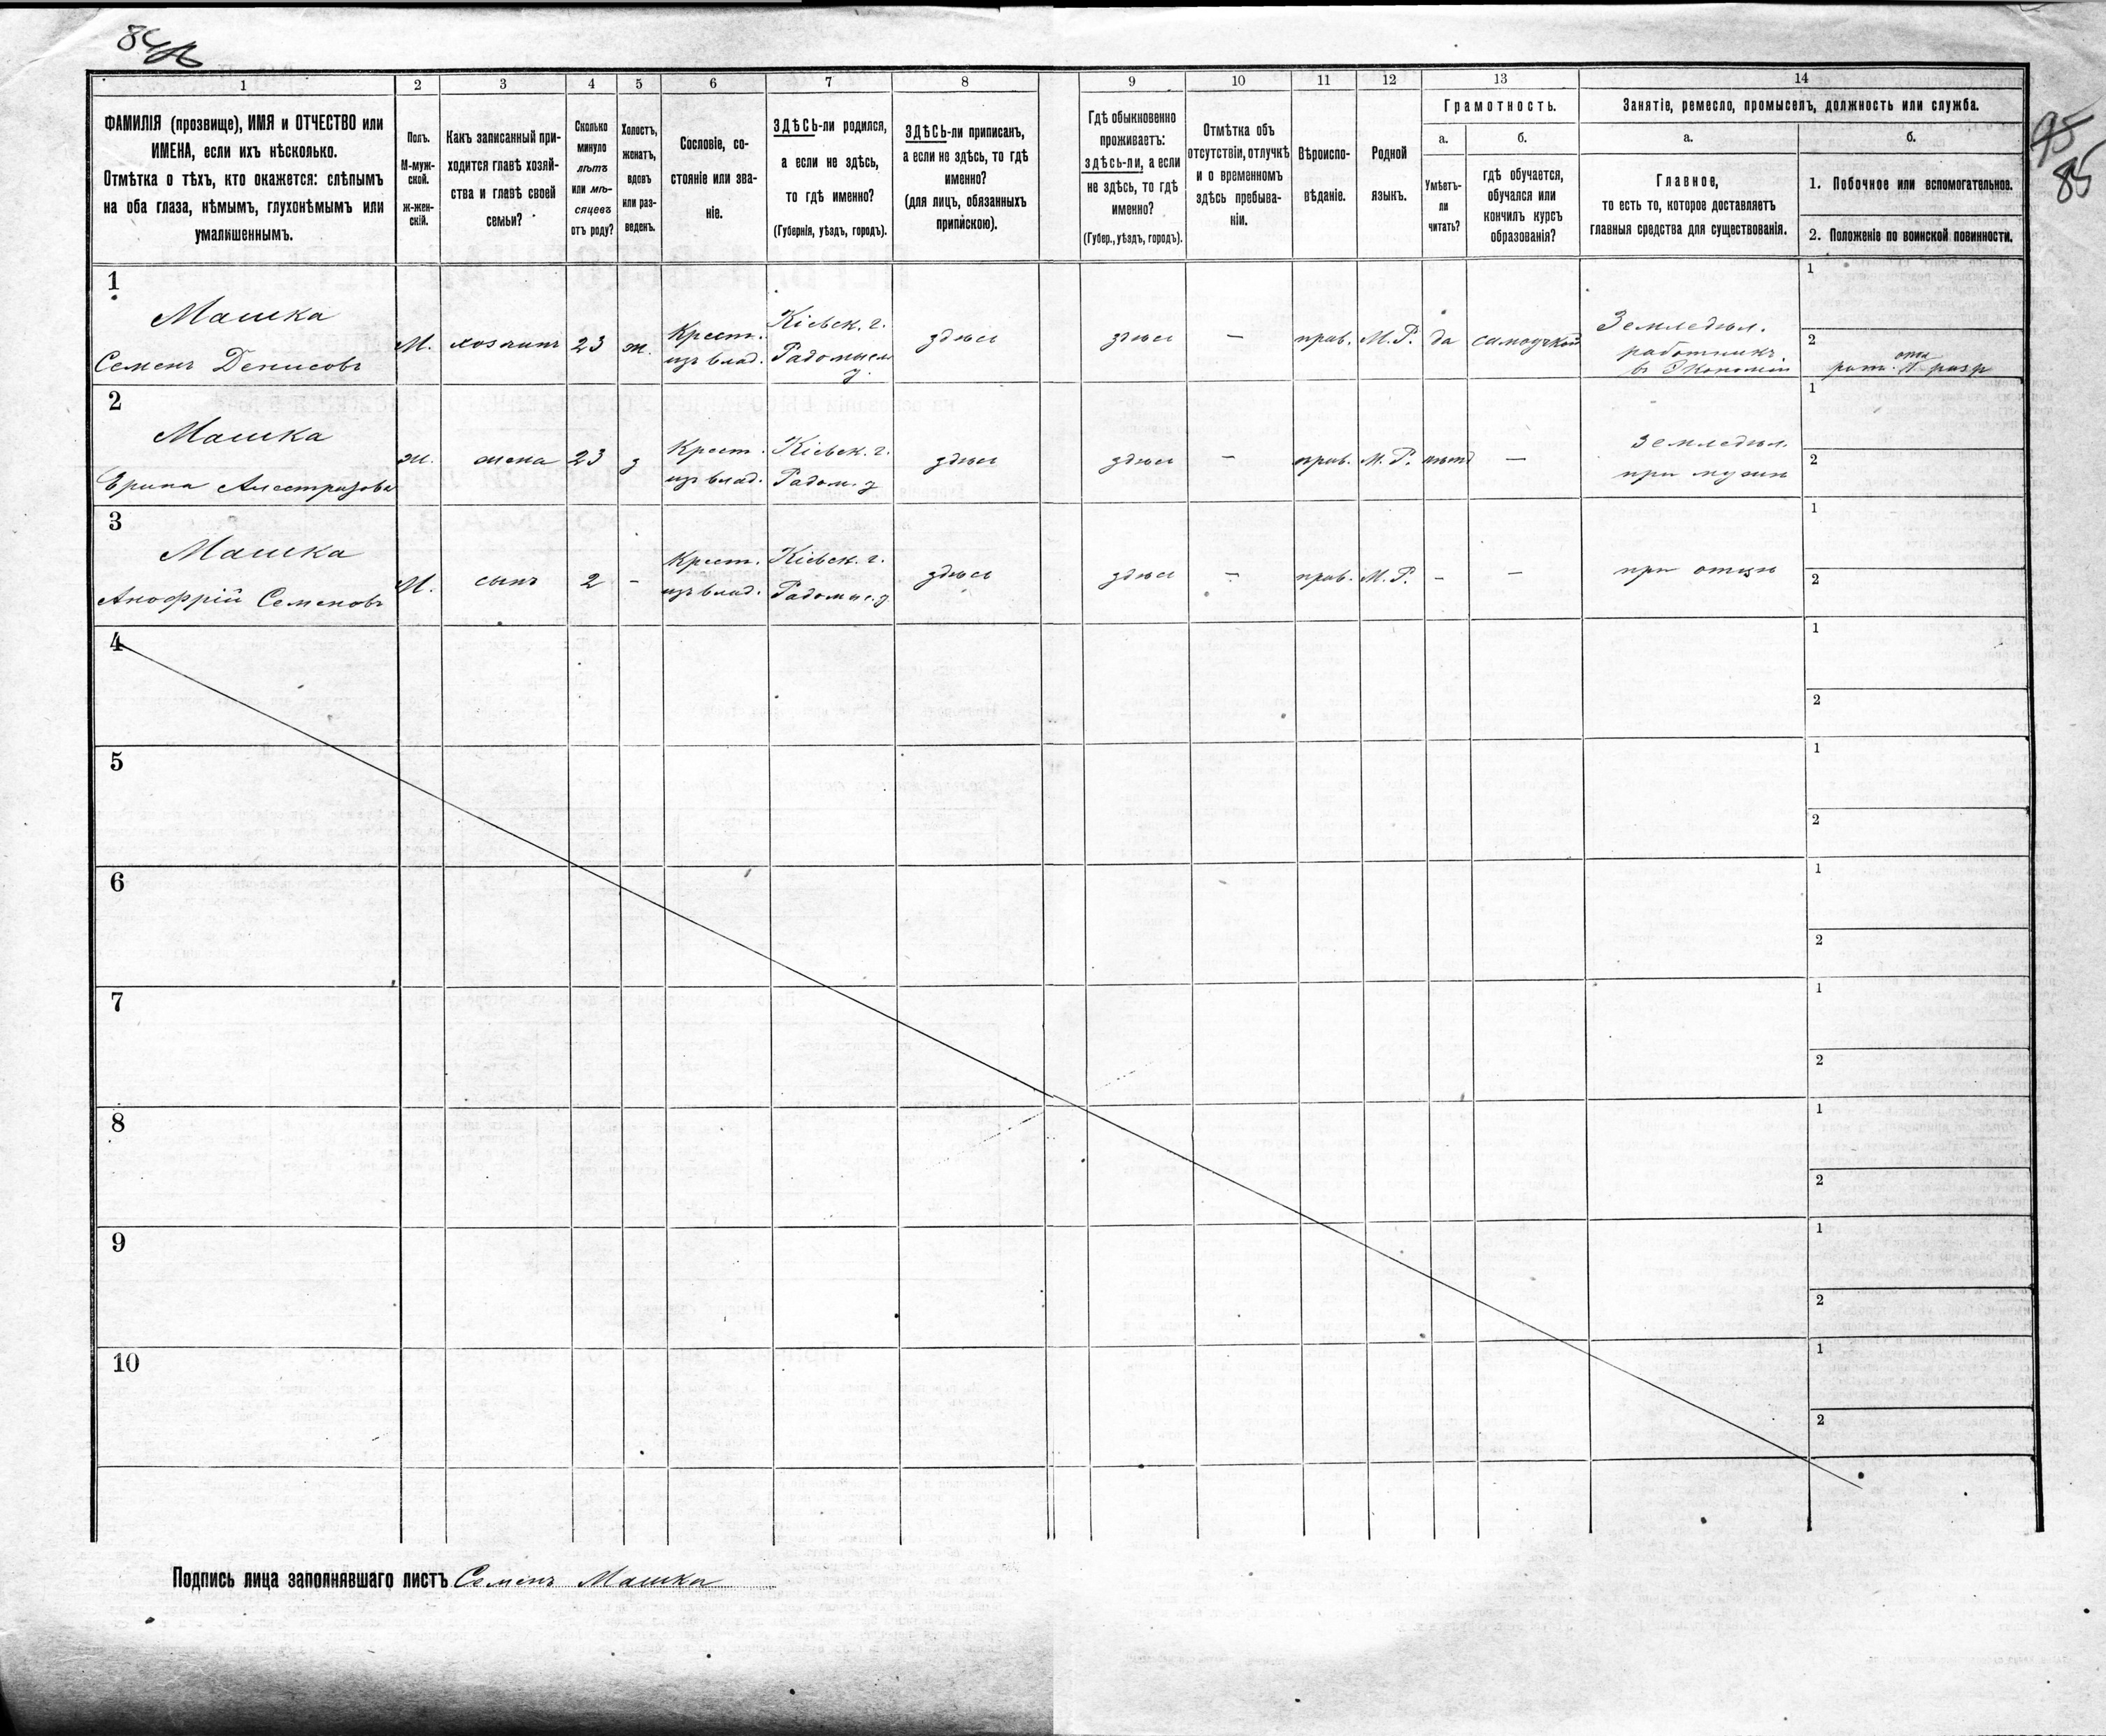 84
1
2
3
4
5
6
7
8
9
10
11
12
13
14
ФАМИЛІЯ (прозвище), ИМЯ и ОТЧЕСТВО или
ИМЕНА, если ихъ нѣсколько.
Отмѣтка о тѣхъ, кто окажется: слѣпымъ
на оба глаза, нѣмымъ, глухонѣмымъ или
умалишеннымъ.
Полъ.
М-муж-
ской.
ж-жен-
скій.
Какъ записанный при-
ходится главѣ хозяй-
ства и главѣ своей
семьи?
Сколько
минуло
лѣтъ
или мѣ-
сяцевъ
отъ роду?
Холостъ,
женатъ,
вдовъ
или раз-
веденъ.
Сословіе, со-
стояніе или зва-
ніе.
ЗДѢСЬ-ли родился,
а если не здѣсь,
то гдѣ именно?
(Губернія, уѣздъ, городъ).
ЗДѢСЬ-ли приписанъ,
а если не здѣсь, то гдѣ
именно?
(для лицъ, обязанныхъ
припискою).
Гдѣ обыкновенно
проживаетъ:
здѣсь-ли, а если
не здѣсь, то гдѣ
именно?
(Губер., уѣздъ, городъ).
Отмѣтка объ
отсутствіи, отлучкѣ
и о временномъ
здѣсь пребыва-
ніи.
Вѣроиспо-
вѣданіе.
Родной
языкъ.
Грамотность.
а.
Умѣетъ-
ли
читать?
б.
гдѣ обучается,
обучался или
кончилъ курсъ
образованія?
Занятіе, ремесло, промыселъ, должность или служба.
а.
Главное,
то есть то, которое доставляетъ
главныя средства для существованія.
б.
1. Побочное или вспомогательное.
2. Положеніе по воинской повинности.
95
85
1
Машка
Семенъ Денисовъ
М.
хозяинъ
23
ж.
Крест.
изъ влад.
Кіевск. г.
Радомысл
у.
здѣсь
здѣсь
—
прав.
М. Р.
да
самоучкой
Земледѣл.
работникъ.
въ Экономіи
1
2
рат. II разр
2
Машка
Ж.
жена
23
з
Крест.
изъ влад.
Кіевск. г.
Радом. у
здѣсь
здѣсь
—
прав.
М. Р.
нѣтъ
—
Земледѣл.
при мужѣ
1
2
3
Машка
Анофрій Семеновъ
М.
сынъ
2
-
Крест.
изъ влад.
Кіевск. г.
Радомыс. у
здѣсь
здѣсь
—
прав.
М. Р.
-
—
при отцѣ
1
2
4
1
2
5
1
2
6
1
2
7
1
2
8
1
2
9
1
2
10
1
2
Подпись лица заполнявшаго листъ Семенъ Машка